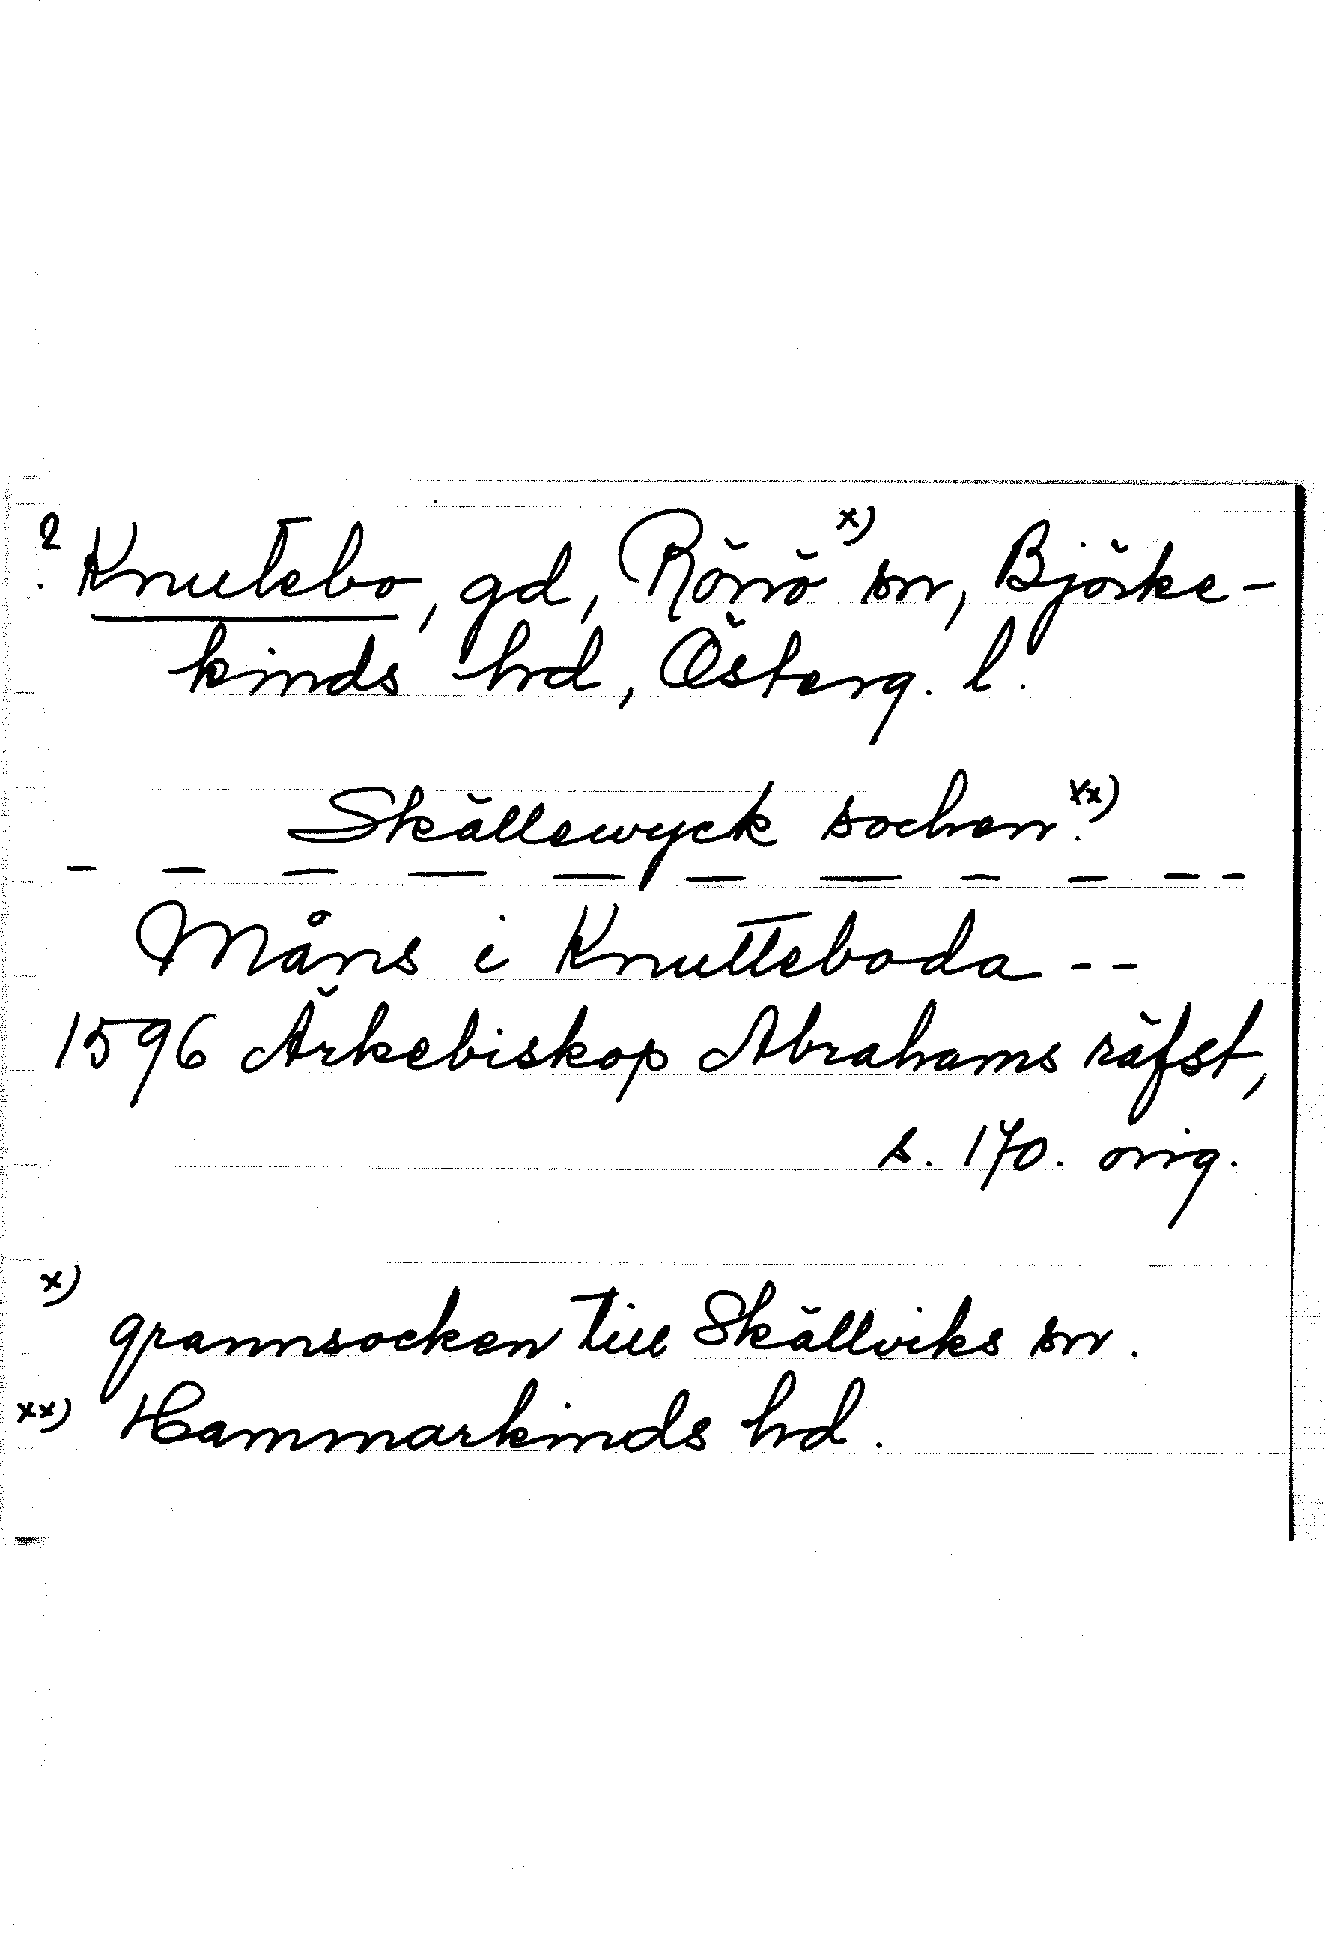 ? Knutebo, gd, Rönö x) sn, Björke-
kinds hd, Österg. l.
Skällewyck sochen. xx)
- - - - - - - - - - -
Måns i Knutteboda --
1596 Ärkebiskop Abrahams räfst,
s. 170. orig.
x) grannsocken till Skällviks sn.
xx) Hammarkinds hd.